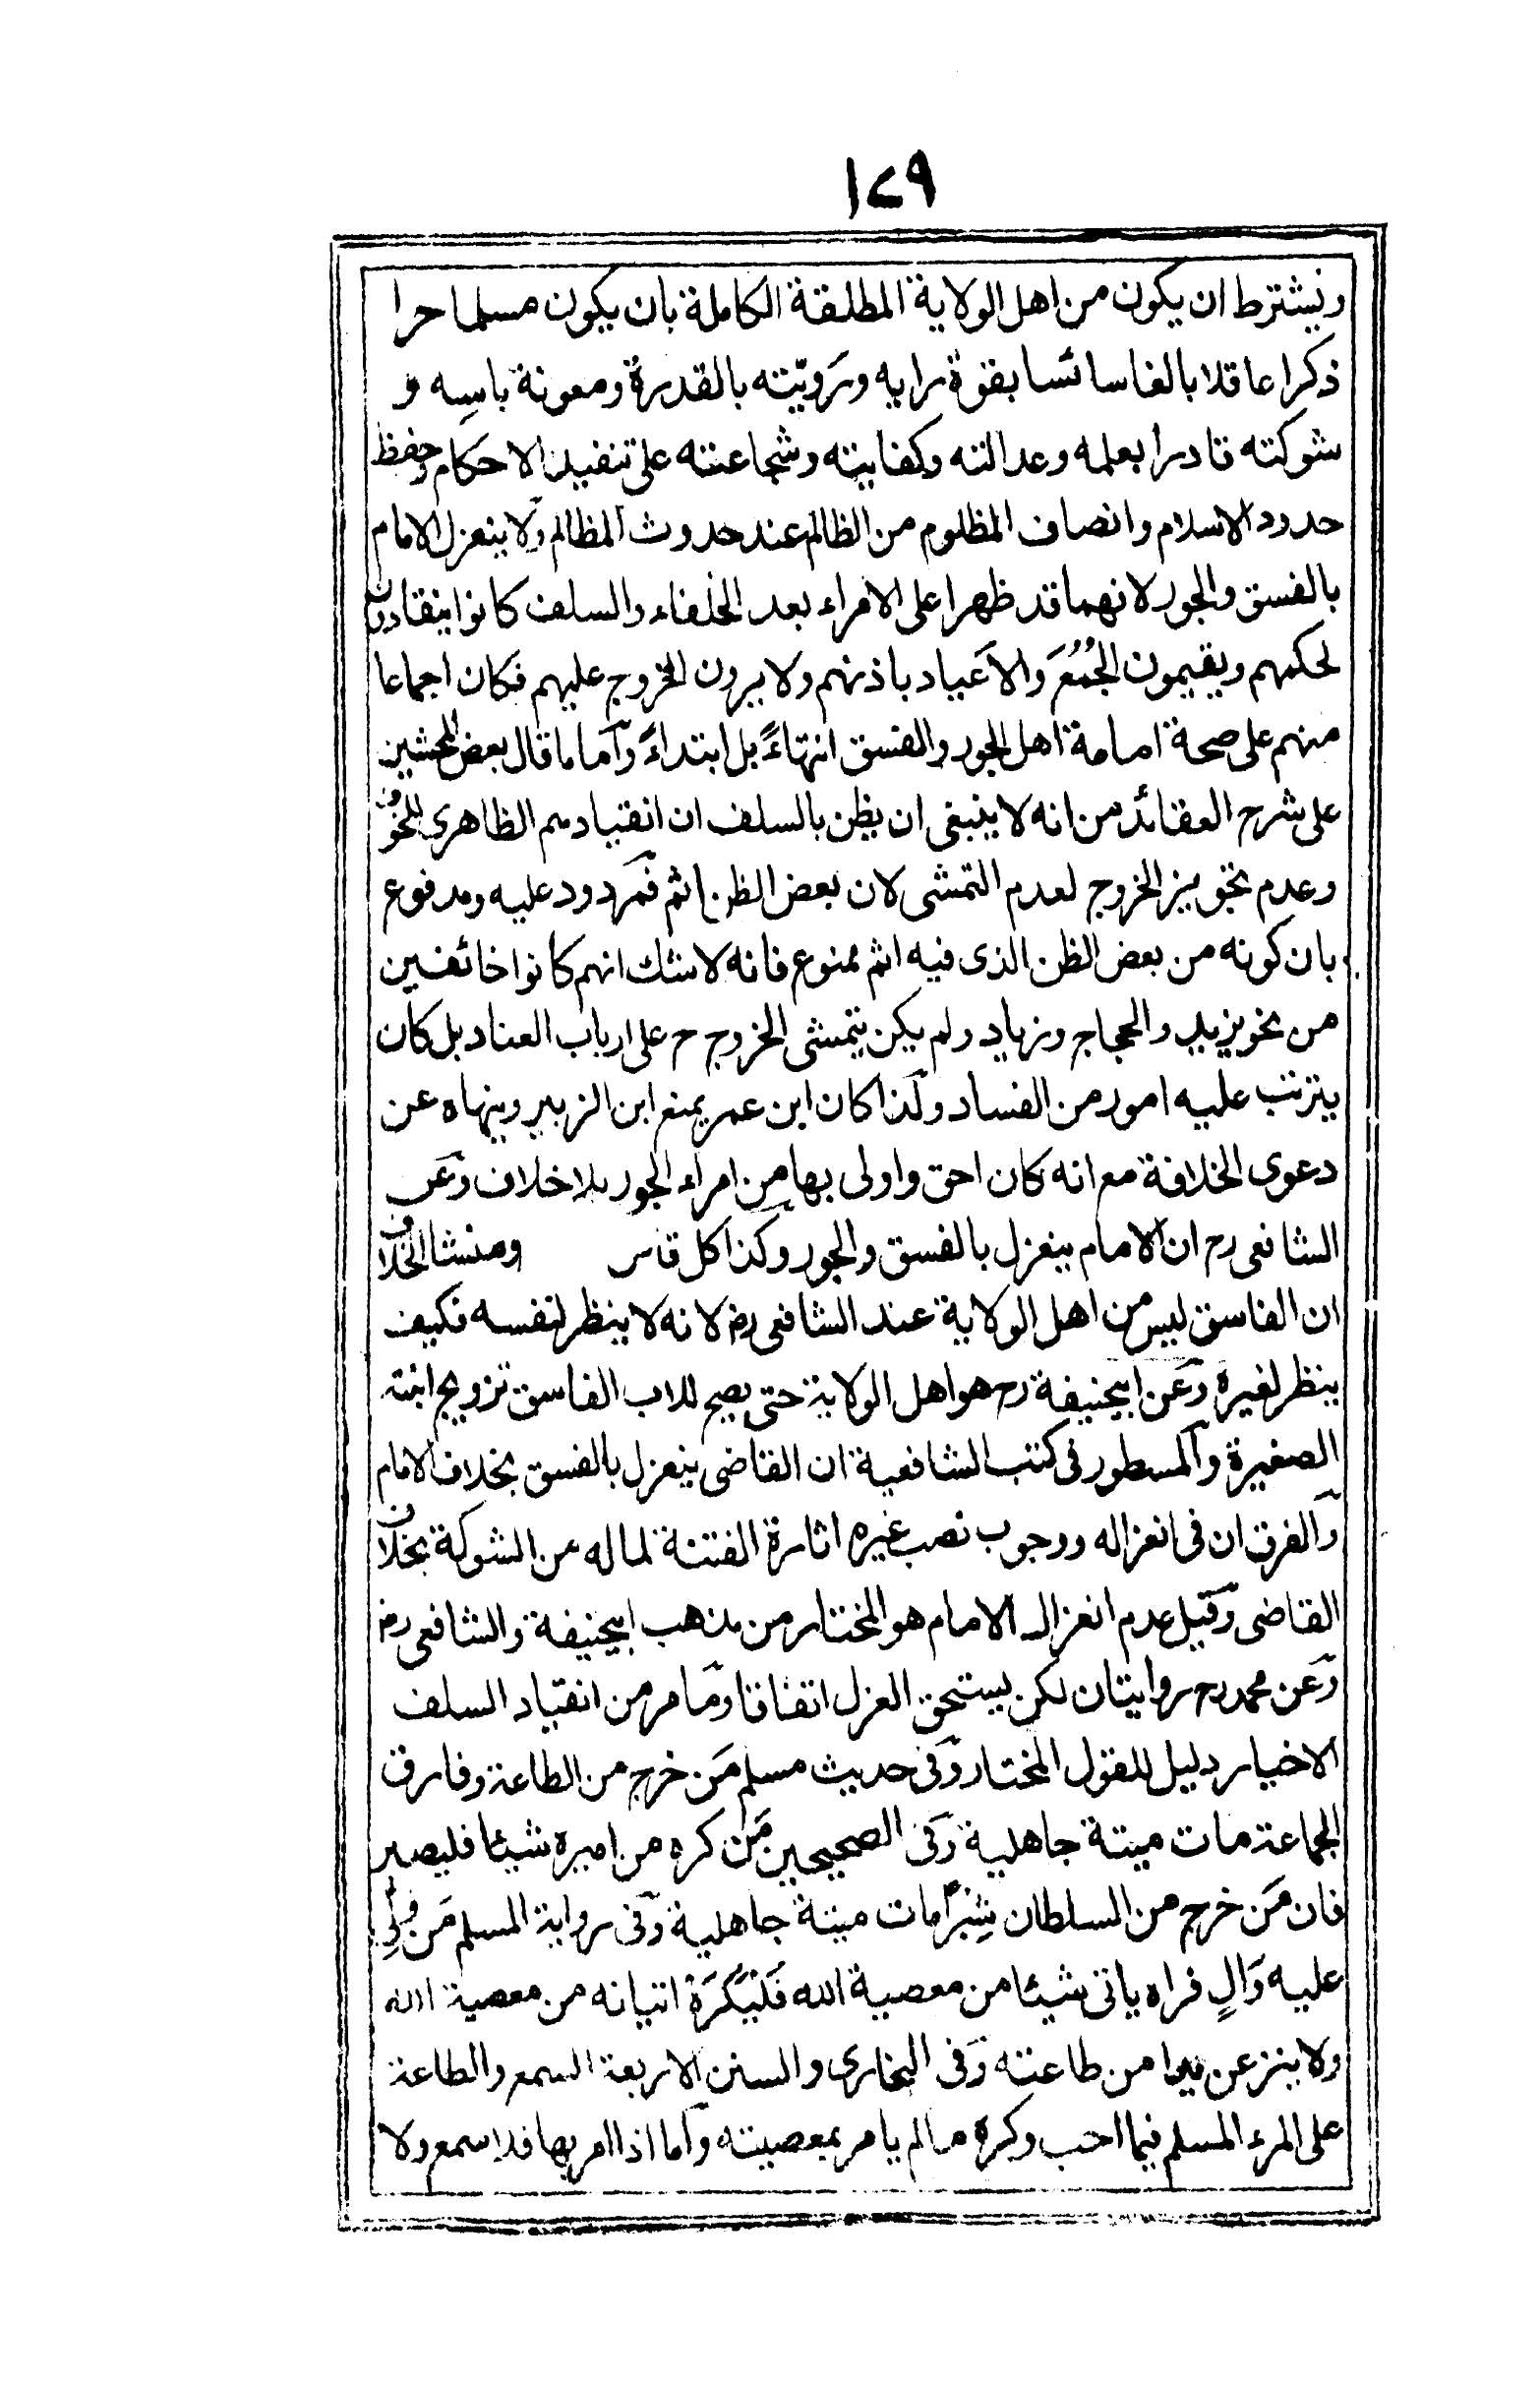 ١٧٩
ويشترط ان يكون من اهل الولاية المطلقة الكاملة بان يكون مسلما حرا
ذكرا عاقلا بالغا سائسا بقوة رايه ورَويّته بالقدرة ومعونة باسه و
شوكته قادرا بعلمه وعدالته وكفايته وشجاعته على تنفيذ الاحكام وحفظ
حدود الاسلام وانصاف المظلوم من الظالم عند حدوث المظالم ولا ينعزل الامام
بالفسق والجور لانهما قد ظهرا على الامراء بعد الخلفاء والسلف كانوا ينقادون
لحكمهم ويقيمون الجُمُعَ والاَعياد باذنهم ولا يرون الخروج عليهم فكان اجماعا
منهم على صحة امامة اهل الجور والفسق انتهاءً بل ابتداءً وآما ما قال بعض المحشين
على شرح العقائد من انه لا ينبغى ان يظن بالسلف ان انقيادهم الظاهرى للخوف
وعدم تجويز الخروج لعدم التمشى لان بعض الظن اثم فمردود عليه ومدفوع
بان كونه من بعض الظن الذى فيه اثم ممنوع فانه لا شك انهم كانوا خائفين
من نحو يزيد والحجاج وزياد ولم يكن يتمشى الخروج ح على ارباب العناد بل كان
يترتب عليه امور من الفساد ولذا كان ابن عمر يمنع ابن الزبير وينهاه عن
دعوى الخلافة مع انه كان احق واولى بها من امراء الجور بلا خلاف وعن
الشافعى رح ان الامام ينعزل بالفسق والجور وكذا كل قاس ومنشا الخلاف
ان الفاسق ليس من اهل الولاية عند الشافعى رح لانه لا ينظر لنفسه فكيف
ينظر لغيره وعن ابيحنيفة رح هو اهل الولاية حتى يصح للاب الفاسق تزويج ابنته
الصغيرة والمسطور فى كتب الشافعية ان القاضى ينعزل بالفسق بخلاف الامام
والفرق ان فى انعزاله ووجوب نصب غيره اثارة الفتنة لما له من الشوكة بخلاف
القاضى وقيل عدم انعزال الامام هو المختار من مذهب ابيحنيفة والشافعى رح
وعن محمد رح روايتان لكن يستحق العزل اتفاقا وما مر من انقياد السلف
الاخيار دليل للقول المختار وفى حديث مسلم مَن خرج من الطاعة وفارق
الجماعة مات ميتة جاهلية وفى الصحيحين مَن كره من اميره شيئا فليصبر
فان مَن خرج من السلطان شِبْرًا مات ميتة جاهلية وفى رواية المسلم مَن وُلِّى
عليه وَالٍ فراه ياتى شيئا من معصية الله فَلْيَكْرَهْ اتيانه من معصية الله
ولا ينزعن يدا من طاعته وفى البخارى والسنن الاربعة السمع والطاعة
على المرء المسلم فيما احب وكره مالم يامر بمعصيته وآما اذا امر بها فلا سمع ولا